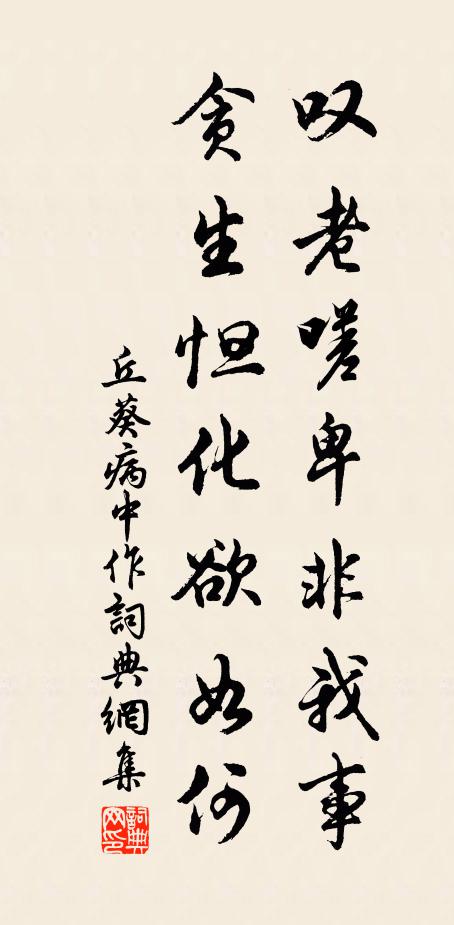 叹老嗟卑非我事
貪生怛化欲如何
丘葵病中作詞典網集
詞典网印